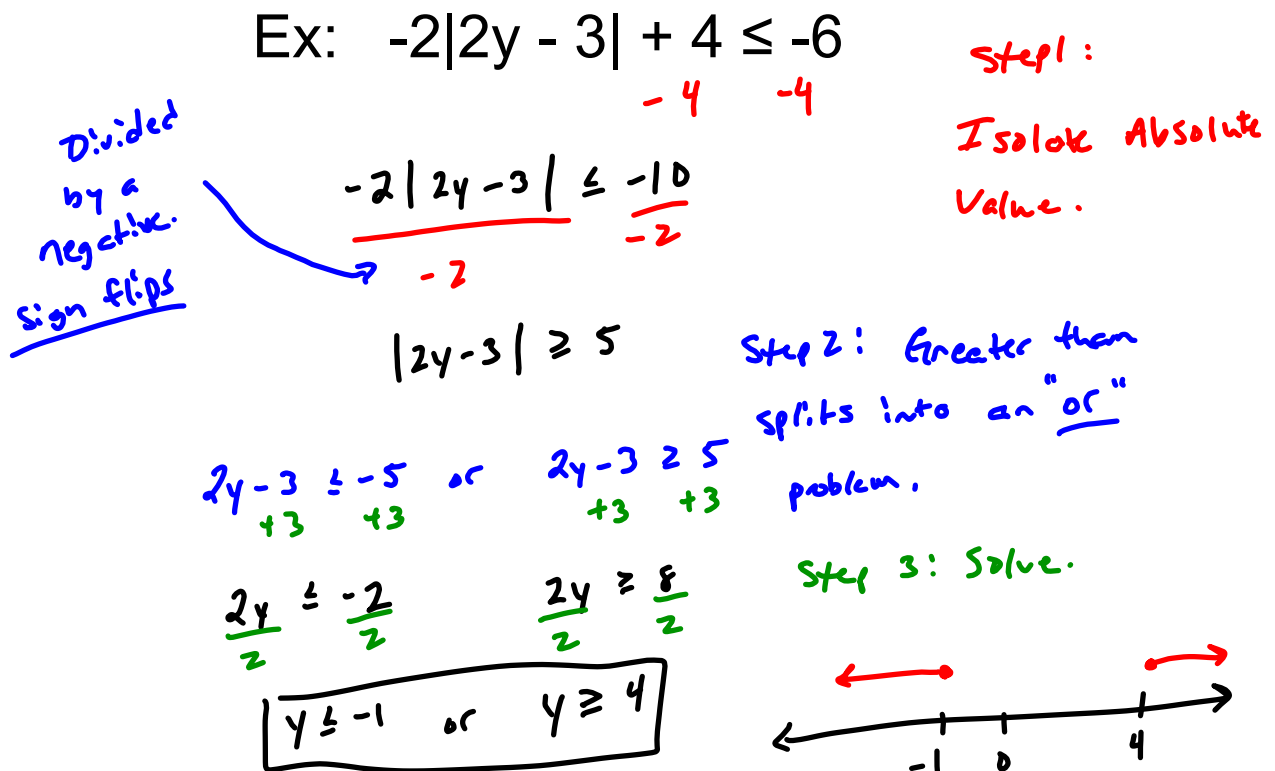 Ex: -2|2y - 3| + 4 ≤ -6
- 4 -4
Step 1:
Isolate Absolute
Value.
Divided
by a
negative.
Sign flips
-2|2y-3| ≤ -10
-2 -2
|2y-3| ≥ 5
Step 2: Greater than
splits into an "or"
problem.
2y-3 ≤ -5 or 2y-3 ≥ 5
+3 +3 +3 +3
Step 3: Solve.
2y ≤ -2 2y ≥ 8
2 2 2 2
y ≤ -1 or y ≥ 4
-1 0 4